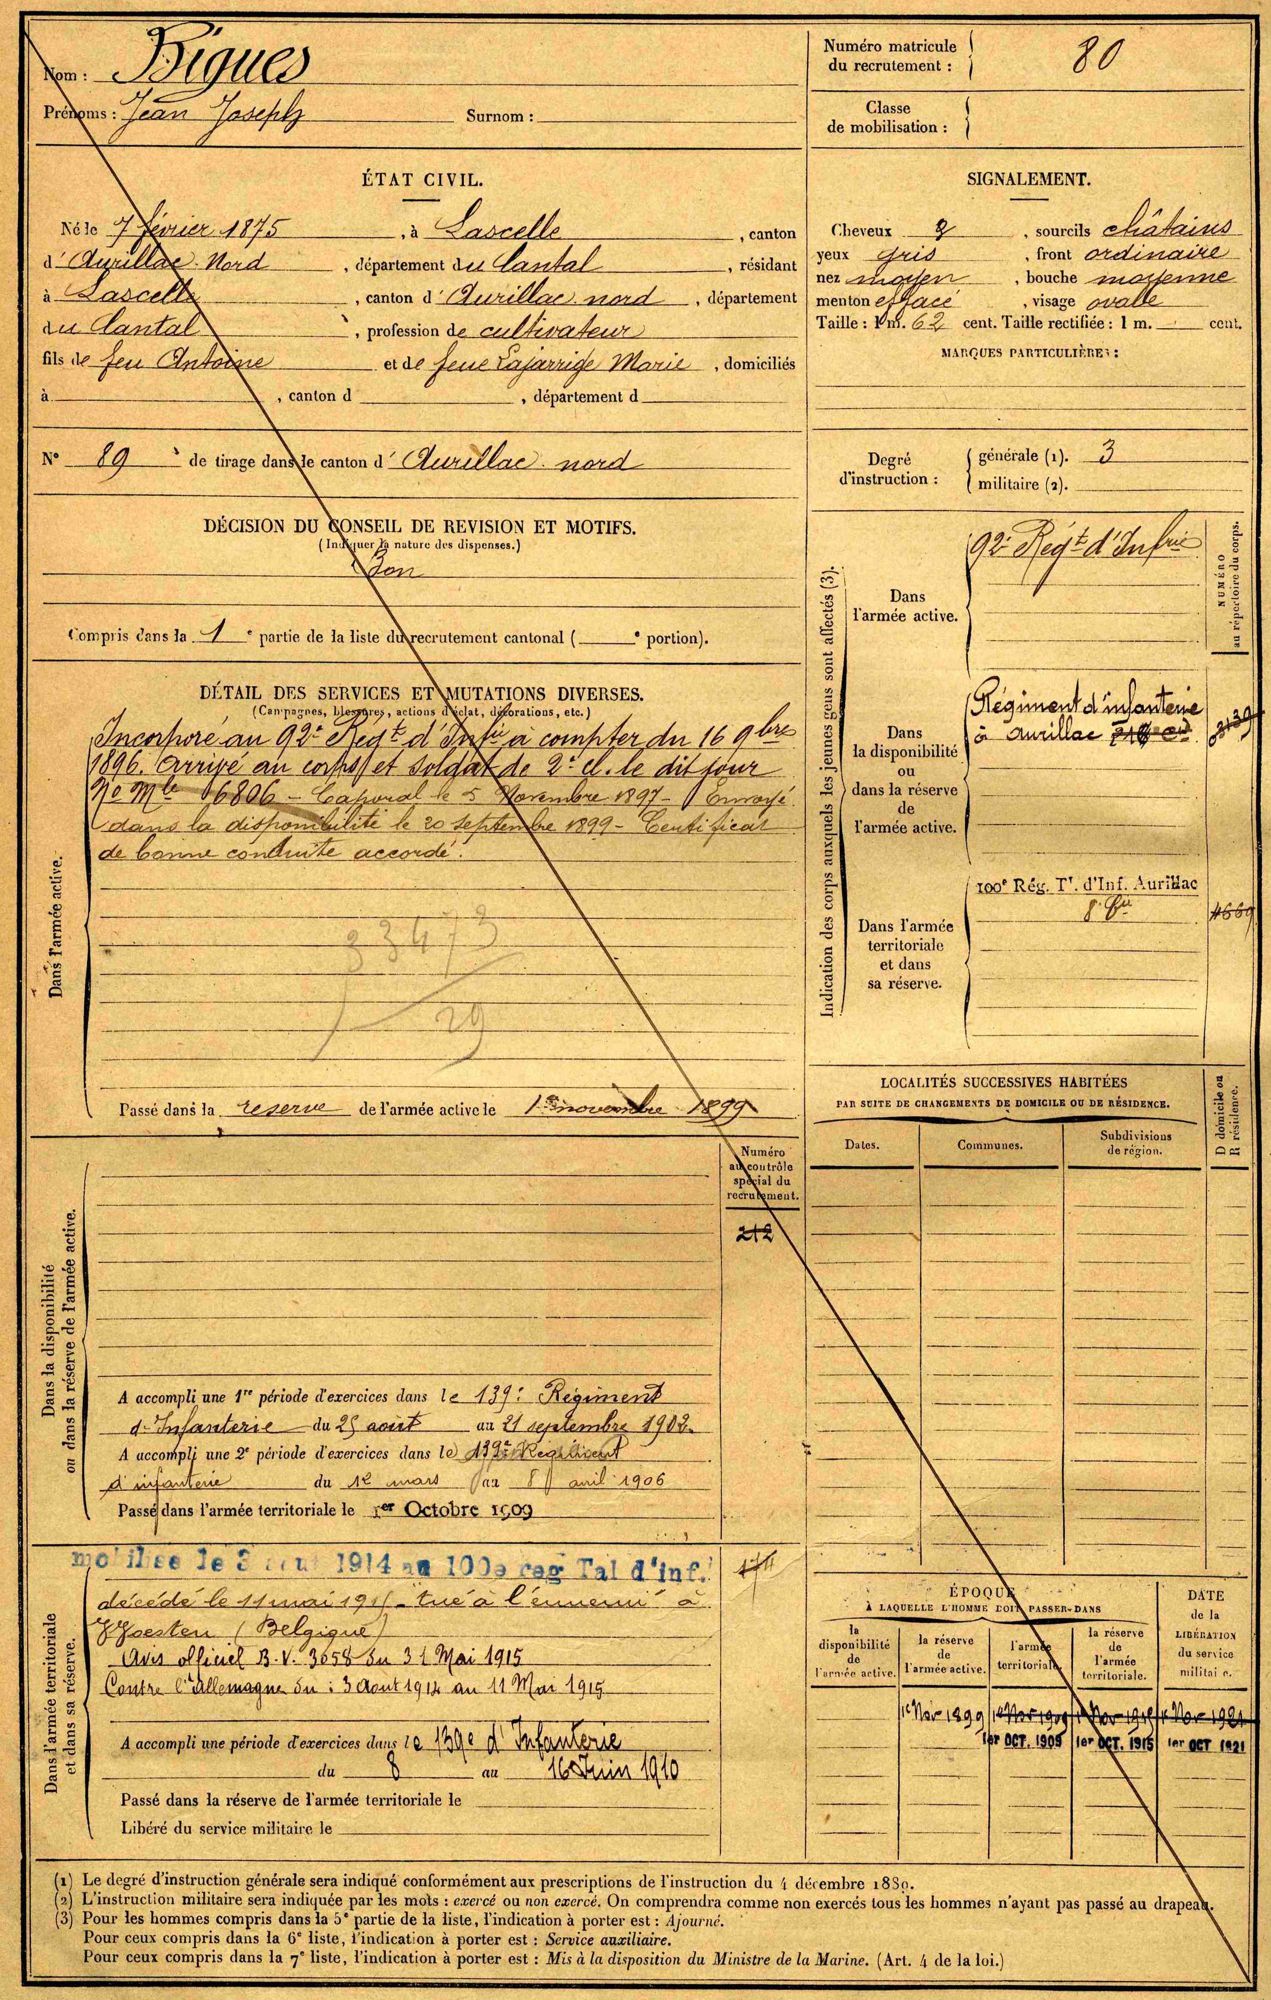 Nom : Bigues
Prénoms : Jean Joseph Surnom :
Numéro matricule
du recrutement : 80
Classe
de mobilisation :
ÉTAT CIVIL.
Né le 7 février 1875, à Lascelle, canton
d'Aurillac Nord, département du Cantal, résidant
à Lascelle, canton d'Aurillac nord, département
du Cantal, profession de cultivateur
fils de feu Antoine et de feue Lajarrige Marie, domiciliés
à , canton d , département d
N° 89 de tirage dans le canton d'Aurillac nord
SIGNALEMENT.
Cheveux & , sourcils châtains
yeux gris , front ordinaire
nez moyen , bouche moyenne
menton effacé , visage ovale
Taille : 1 m. 62 cent. Taille rectifiée : 1 m. cent.
MARQUES PARTICULIÈRES :
Degré
d'instruction :
générale (1). 3
militaire (2).
DÉCISION DU CONSEIL DE REVISION ET MOTIFS.
(Indiquer la nature des dispenses.)
Bon
Compris dans la 1e partie de la liste du recrutement cantonal ( e portion).
DÉTAIL DES SERVICES ET MUTATIONS DIVERSES.
(Campagnes, blessures, actions d'éclat, décorations, etc.)
Dans l'armée active.
Incorporé au 92e Régt d'Infie à compter du 16 9bre
1896. Arrivé au corps et soldat de 2e cl. le dit jour
No Mle 6806 - Caporal le 5 Novembre 1897 - Envoyé
dans la disponibilité le 20 septembre 1899 - Certificat
de bonne conduite accordé.
33473
29
Passé dans la reserve de l'armée active le 1er novembre 1899
Indication des corps auxquels les jeunes gens sont affectés (3).
NUMÉRO
au répertoire du corps.
Dans
l'armée active.
92e Régt d'Infrie
Dans
la disponibilité
ou
dans la réserve
de
l'armée active.
Régiment d'infanterie
à Aurillac
Dans l'armée
territoriale
et dans
sa réserve.
100e Rég. Tl. d'Inf. Aurillac
8e Cie
4669
LOCALITÉS SUCCESSIVES HABITÉES
PAR SUITE DE CHANGEMENTS DE DOMICILE OU DE RÉSIDENCE.
Dates. Communes. Subdivisions
de région.
D domicile ou
R résidence.
Dans la disponibilité
ou dans la réserve de l'armée active.
Numéro
au contrôle
spécial du
recrutement.
212
A accompli une 1re période d'exercices dans le 139e Régiment
d'Infanterie du 25 août au 21 septembre 1902.
A accompli une 2e période d'exercices dans le 139e Régiment
d'infanterie du 12 mars au 8 avril 1906
Passé dans l'armée territoriale le 1er Octobre 1909
Dans l'armée territoriale
et dans sa réserve.
mobilisé le 3 aout 1914 au 100e reg Tal d'inf.
décédé le 11 mai 1915 - tué à l'ennemi à
(Belgique)
Avis officiel B.V. 3058 du 31 Mai 1915
Contre l'Allemagne du : 3 Aout 1914 au 11 Mai 1915
A accompli une période d'exercices dans le 139e d'Infanterie
du 8 au 16 Juin 1910
Passé dans la réserve de l'armée territoriale le
Libéré du service militaire le
ÉPOQUE
À LAQUELLE L'HOMME DOIT PASSER DANS
la
disponibilité
de
l'armée active.
la réserve
de
l'armée active.
l'armée
territoriale.
la réserve
de
l'armée
territoriale.
DATE
de la
LIBÉRATION
du service
militaire.
1er Nov 1899 1er Nov 1909 1er Nov 1915 1er Nov 1921
1er OCT. 1909 1er OCT. 1915 1er OCT 1921
(1) Le degré d'instruction générale sera indiqué conformément aux prescriptions de l'instruction du 4 décembre 1889.
(2) L'instruction militaire sera indiquée par les mots : exercé ou non exercé. On comprendra comme non exercés tous les hommes n'ayant pas passé au drapeau.
(3) Pour les hommes compris dans la 5e partie de la liste, l'indication à porter est : Ajourné.
Pour ceux compris dans la 6e liste, l'indication à porter est : Service auxiliaire.
Pour ceux compris dans la 7e liste, l'indication à porter est : Mis à la disposition du Ministre de la Marine. (Art. 4 de la loi.)